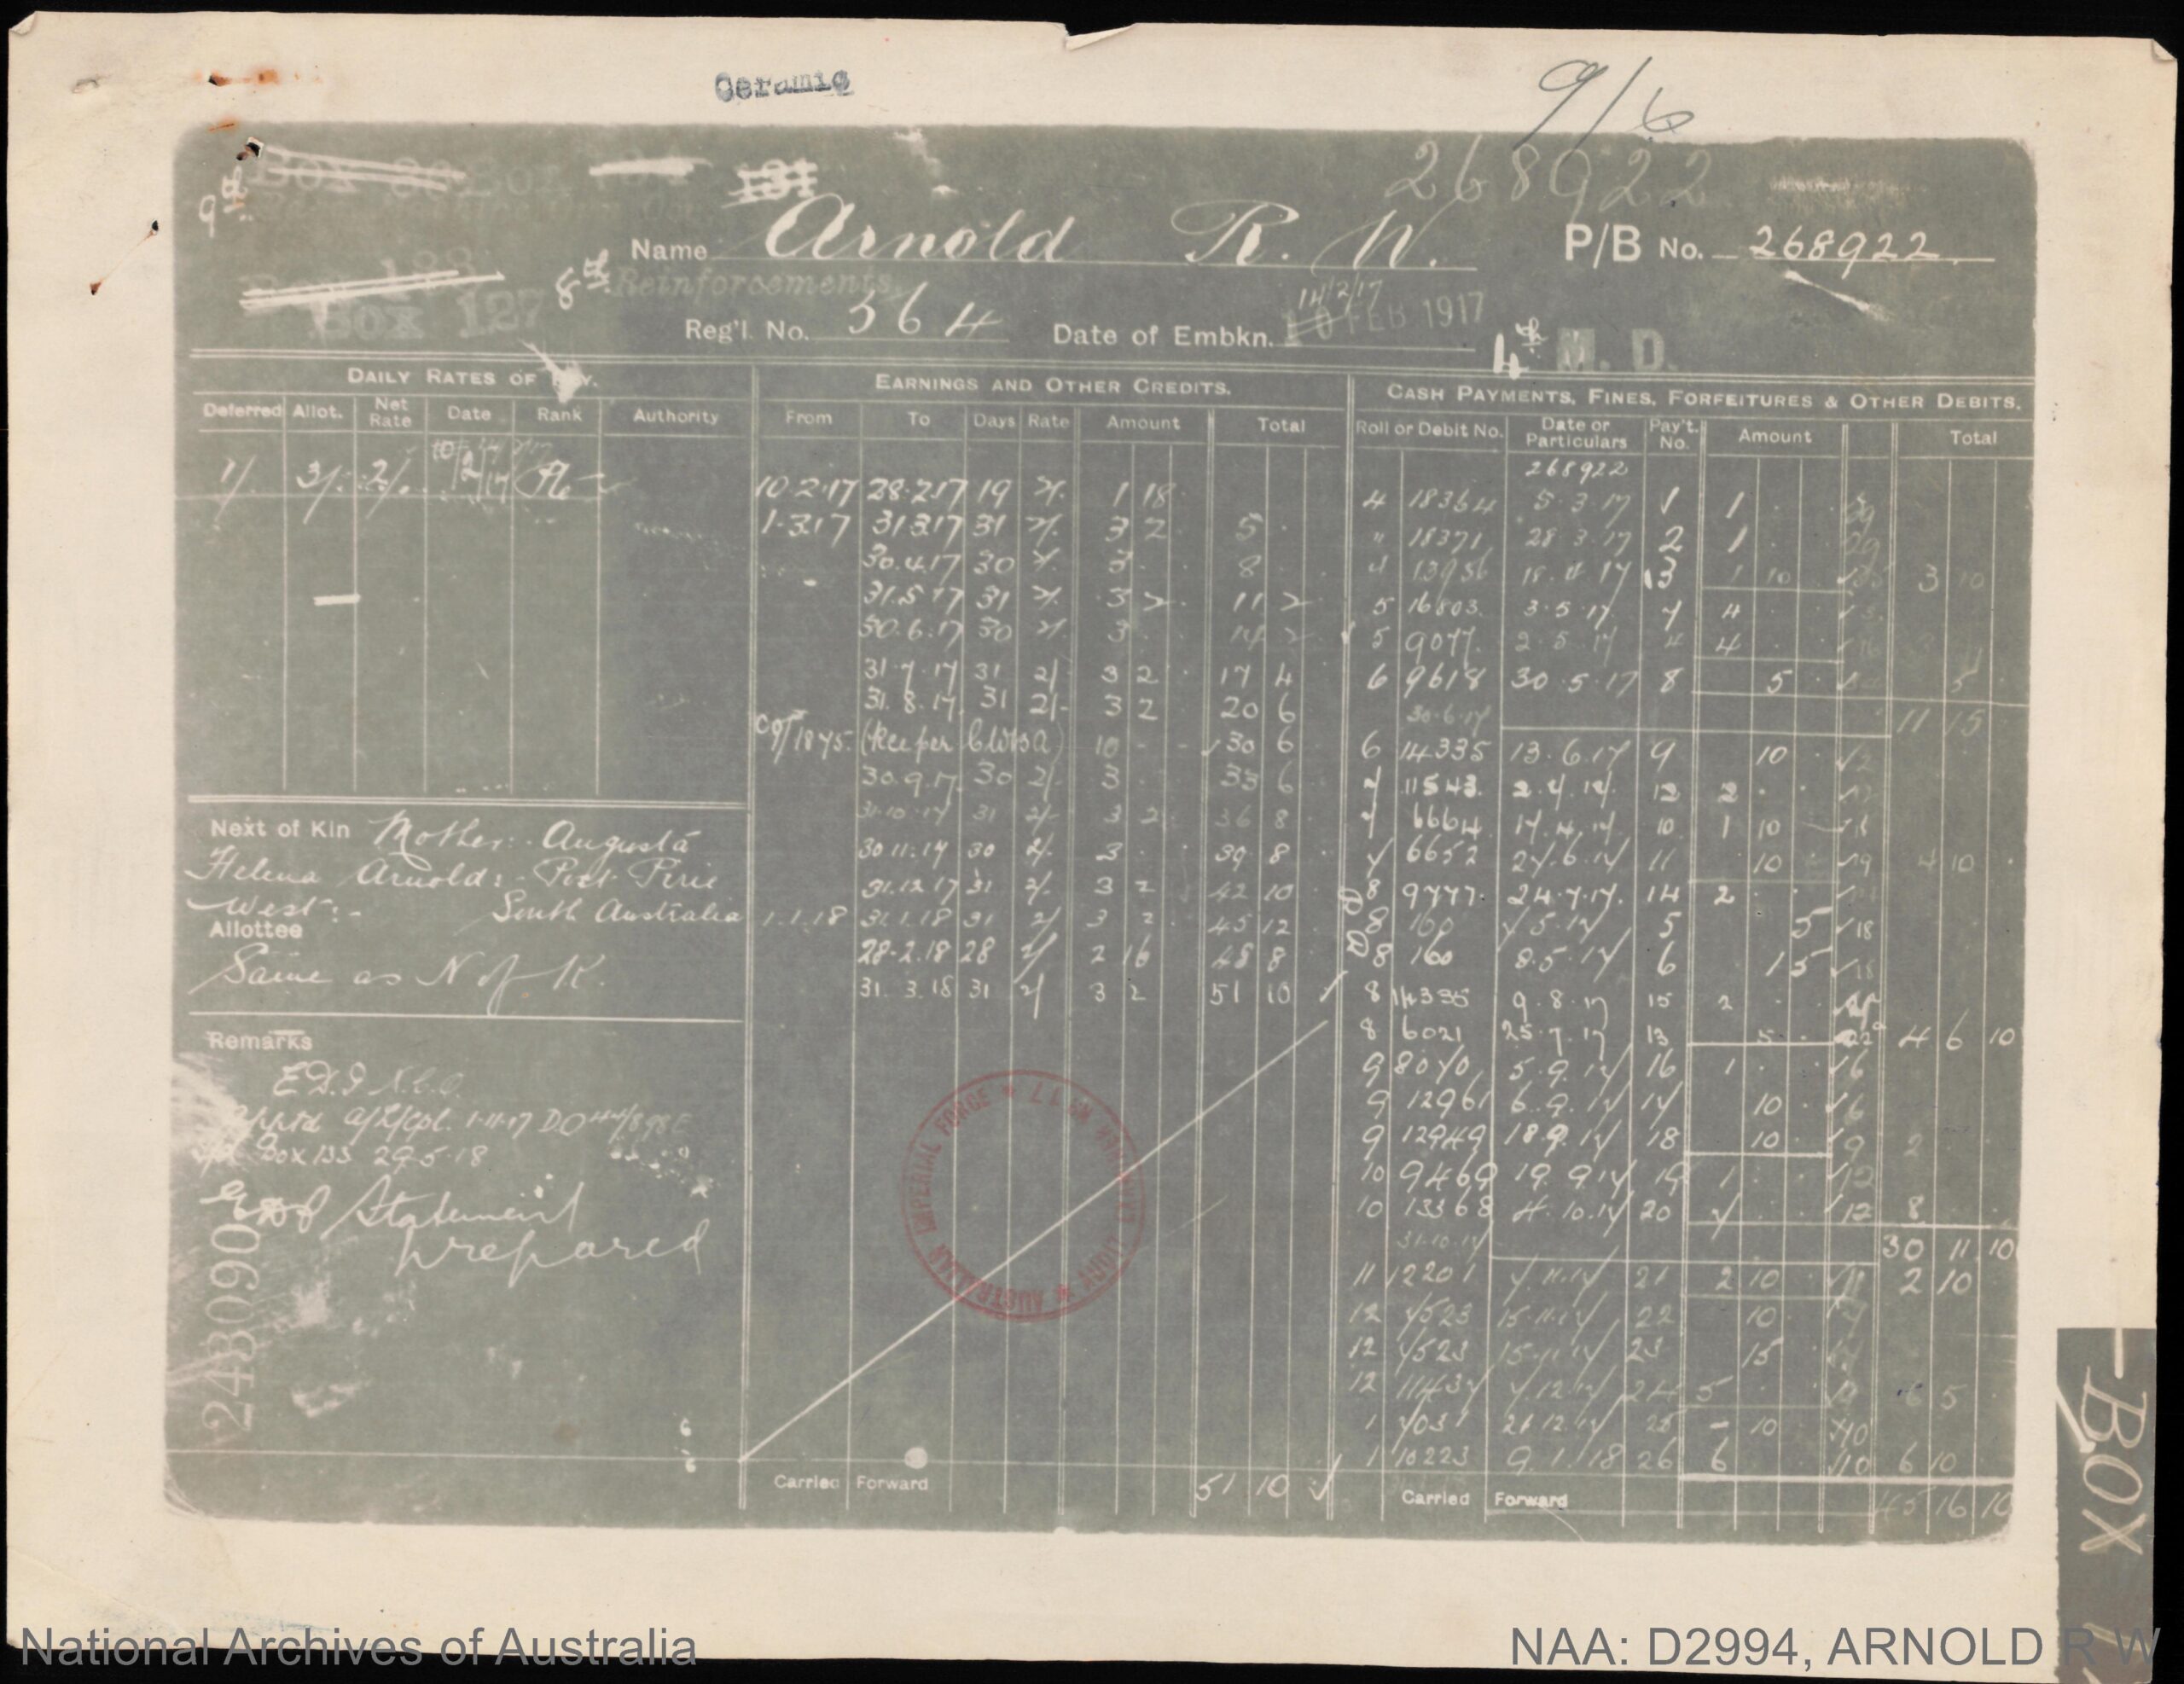 Ceramic
9/6
268922
131
9th
Name Arnold R. W.
P/B No. 268922
Box 127
8th Reinforcements
Reg'l. No. 364 Date of Embkn. 14/2/17 10 FEB 1917
4th M. D.
DAILY RATES OF PAY.
EARNINGS AND OTHER CREDITS.
CASH PAYMENTS, FINES, FORFEITURES & OTHER DEBITS.
Deferred Allot. Net Rate Date Rank Authority
From To Days Rate Amount Total
Roll or Debit No. Date or Particulars Pay't. No. Amount Total
268922
1/. 3/. 2/. 10/2/17 Pte
10.2.17 28.2.17 19 2/. 1 18
1.3.17 31.3.17 31 2/. 3 2 5
30.4.17 30 2/. 3 8
31.5.17 31 2/. 3 2 11 2
30.6.17 30 2/. 3 14 2
31.7.17 31 2/ 3 2 17 4
31.8.17 31 2/- 3 2 20 6
1875 10 30 6
30.9.17 30 2/- 3 33 6
31.10.17 31 2/- 3 2 36 8
30.11.17 30 2/. 3 39 8
31.12.17 31 2/. 3 2 42 10
1.1.18 31.1.18 31 2/ 3 2 45 12
28.2.18 28 2/ 2 16 48 8
31.3.18 31 2/ 3 2 51 10
4 18364 5.3.17 1 1
" 18371 28.3.17 2 1
4 13956 18.4.17 3 1 10 3 10
5 16803 3.5.17 7 4
5 9077 2.5.17 4 4
6 9618 30.5.17 8 5 5
30.6.17 11 15
6 14335 13.6.17 9 10
7 11543 2.7.17 12 2
7 6664 17.7.17 10 1 10
7 6652 27.6.17 11 10 4 10
8 9777 24.7.17 14 2
8 160 7.5.17 5 5
8 160 8.5.17 6 1 5
8 14335 9.8.17 15 2
8 6021 25.7.17 13 5 4 6 10
9 8070 5.9.17 16 1
9 12961 6.9.17 17 10
9 12949 18.9.17 18 10 2
10 9469 19.9.17 19 1
10 13368 4.10.17 20 7 8
31.10.17 30 11 10
11 12201 7.11.17 21 2 10 2 10
12 7523 15.11.17 22 10
12 7523 15.11.17 23 15
12 11437 7.12.17 24 5 6 5
1 7031 21.12.17 25 - 10
1 10223 9.1.18 26 6 6 10
Next of Kin Mother:- Augusta
Helena Arnold:- Port Pirie
West:- South Australia
Allottee
Same as N of K.
Remarks
E.D.P. N.C.O.
Apptd A/L/Cpl. 1-11-17 D.O 44/898E
Box 133 29.5.18
Statement
prepared
243090
AUSTRALIAN IMPERIAL FORCE
Carried Forward 51 10
Carried Forward 45 16 10
BOX
National Archives of Australia
NAA: D2994, ARNOLD R W